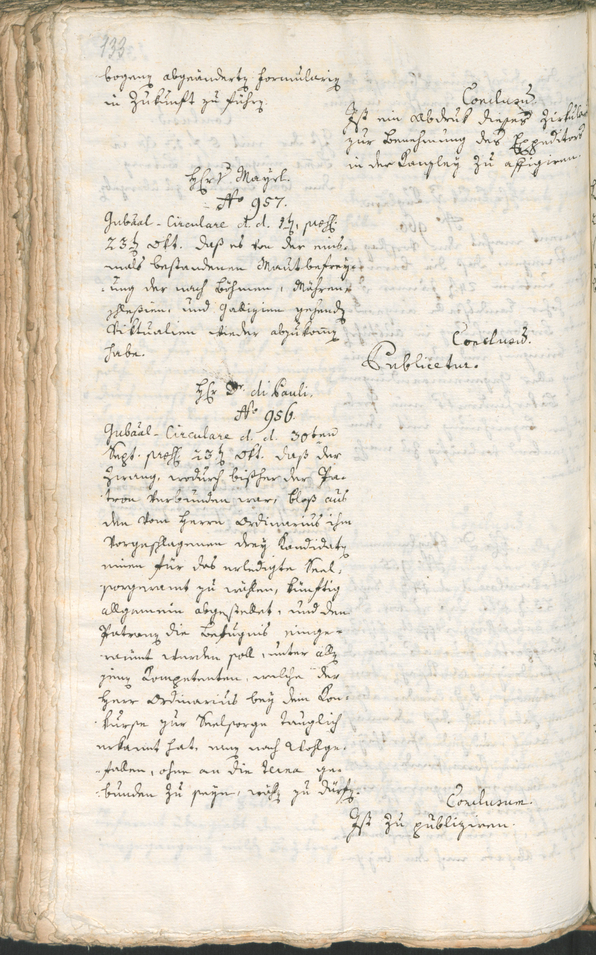 133
bogens abgeänderte Formularien
in Zukunft zu führen.
Conclusum.
Ist ein Abdruk dieses Zirkulars
zur Benehmung des Expeditors
in der Kanzley zu affigiren.
Hr. v. Mayrl.
No 957.
Gubâal-Circulare d. d. 1ten, praes.
23ten Okt. daß es von der ein-
mals bestandenen Mautbefrey-
ung der nach Böhmen, Mähren,
Schlesien, und Gallizien gehenden
Viktualien wieder abzukommen
habe.
Conclusum.
Publicetur.
Hr. Dr. di Pauli.
No 956.
Gubâal-Circulare d. d. 30ten
Sept. praes. 23ten Okt. daß der
Zwang, wodurch bißher der Pa-
tron verbunden war, bloß aus
den vom Herrn Ordinarius ihm
vorgeschlagenen drey Kandidaten
einen für das erledigte Seel-
sorgeramt zu wählen, künftig
allgemein abgestellet, und den
Patronen die Befugnis einge-
räumt werden soll, unter all-
jenen Kompetenten, welche der
Herr Ordinarius bey dem Kon-
kurse zur Seelsorge tauglich
erkannt hat, nach Wohlge-
fallen, ohne an die Terna ge-
bunden zu seyn, wählen zu dürfen.
Conclusum.
Ist zu publiziren.